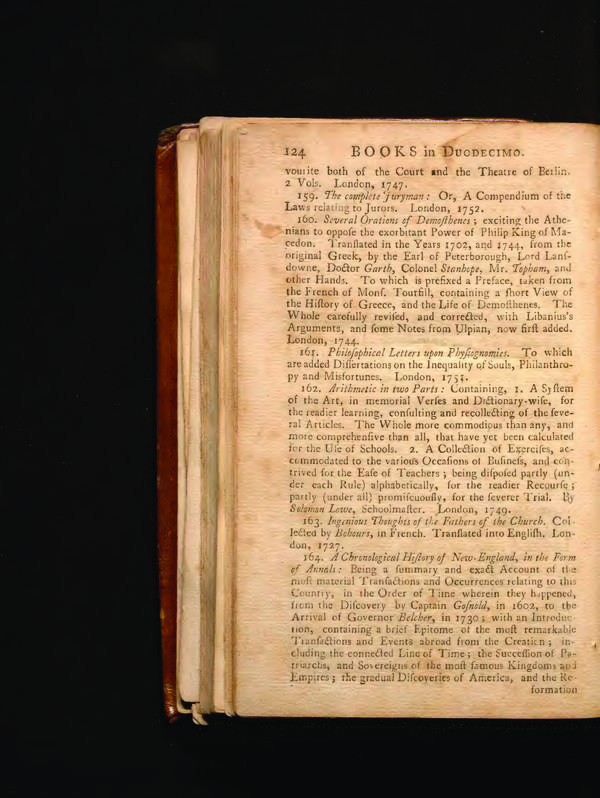 124 BOOKS in DUODECIMO.
vourite both of the Court and the Theatre of Berlin.
2 Vols. London, 1747.
159. The complete Juryman: Or, A Compendium of the
Laws relating to Jurors. London, 1752.
160. Several Orations of Demoſthenes; exciting the Athe-
nians to oppoſe the exorbitant Power of Philip King of Ma-
cedon. Tranſlated in the Years 1702, and 1744, from the
original Greek, by the Earl of Peterborough, Lord Lanſ-
downe, Doctor Garth, Colonel Stanhope, Mr. Topham, and
other Hands. To which is prefixed a Preface, taken from
the French of Monſ. Tourſill, containing a ſhort View of
the Hiſtory of Greece, and the Life of Demoſthenes. The
Whole carefully reviſed, and corrected, with Libanius's
Arguments, and ſome Notes from Ulpian, now firſt added.
London, 1744.
161. Philoſophical Letters upon Phyſiognomies. To which
are added Diſſertations on the Inequality of Souls, Philanthro-
py and Misfortunes. London,
162. Arithmetic in two Parts: Containing, 1. A Syſtem
of the Art, in memorial Verſes and Dictionary-wiſe, for
the readier learning, conſulting and recollecting of the ſeve-
ral Articles. The Whole more commodious than any, and
more comprehenſive than all, that have yet been calculated
for the Uſe of Schools. 2. A Collection of Exerciſes, ac-
commodated to the various Occaſions of Buſineſs, and con-
trived for the Eaſe of Teachers; being diſpoſed partly (un-
der each Rule) alphabetically, for the readier Recourſe;
partly (under all) promiſcuouſly, for the ſeverer Trial. By
Solomon Lowe, Schoolmaſter. London, 1749.
163. Ingenious Thoughts of the Fathers of the Church. Col-
lected by Bohours, in French. Tranſlated into Engliſh. Lon-
don, 1727.
164. A Chronological Hiſtory of New-England, in the Form
of Annals: Being a ſummary and exact Account of the
moſt material Tranſactions and Occurrences relating to this
Country, in the Order of Time wherein they happened,
from the Diſcovery by Captain Goſnold, in 1602, to the
Arrival of Governor Belcher, in 1730; with an Introduc-
tion, containing a brief Epitome of the moſt remarkable
Tranſactions and Events abroad from the Creation; in-
cluding the connected Line of Time; the Succeſſion of Pa-
triarchs, and Sovereigns of the moſt famous Kingdoms and
Empires; the gradual Diſcoveries of America, and the Re-
formation